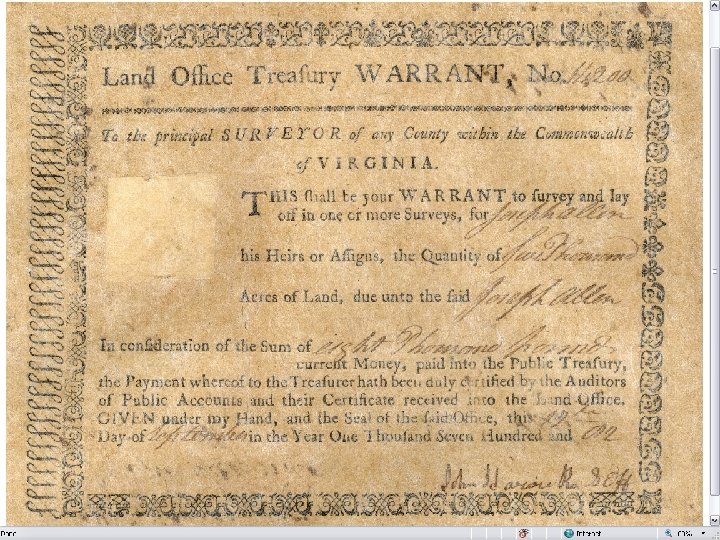 Land Office Treaſury WARRANT, No.
To the principal SURVEYOR of any County within the Commonwealth
of VIRGINIA.
THIS ſhall be your WARRANT to ſurvey and lay
off in one or more Surveys, for Joseph Allen
his Heirs or Aſſigns, the Quantity of Thousand
Acres of Land, due unto the ſaid Joseph Allen
In conſideration of the Sum of eight Thousand Pounds
current Money, paid into the Public Treaſury,
the Payment whereof to the Treaſurer hath been duly certified by the Auditors
of Public Accounts and their Certificate received into the Land Office.
GIVEN under my Hand, and the Seal of the ſaid Office, this
Day of September in the Year One Thouſand Seven Hundred and
John
Done
Internet